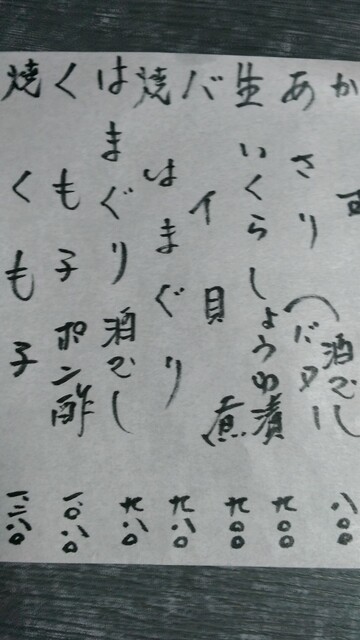 か
あさり(バター 酒むし 八〇〇
生いくらしょうゆ漬 九〇〇
バイ貝煮 九〇〇
焼はまぐり 九八〇
はまぐり酒むし 九八〇
くも子ポン酢
焼くも子